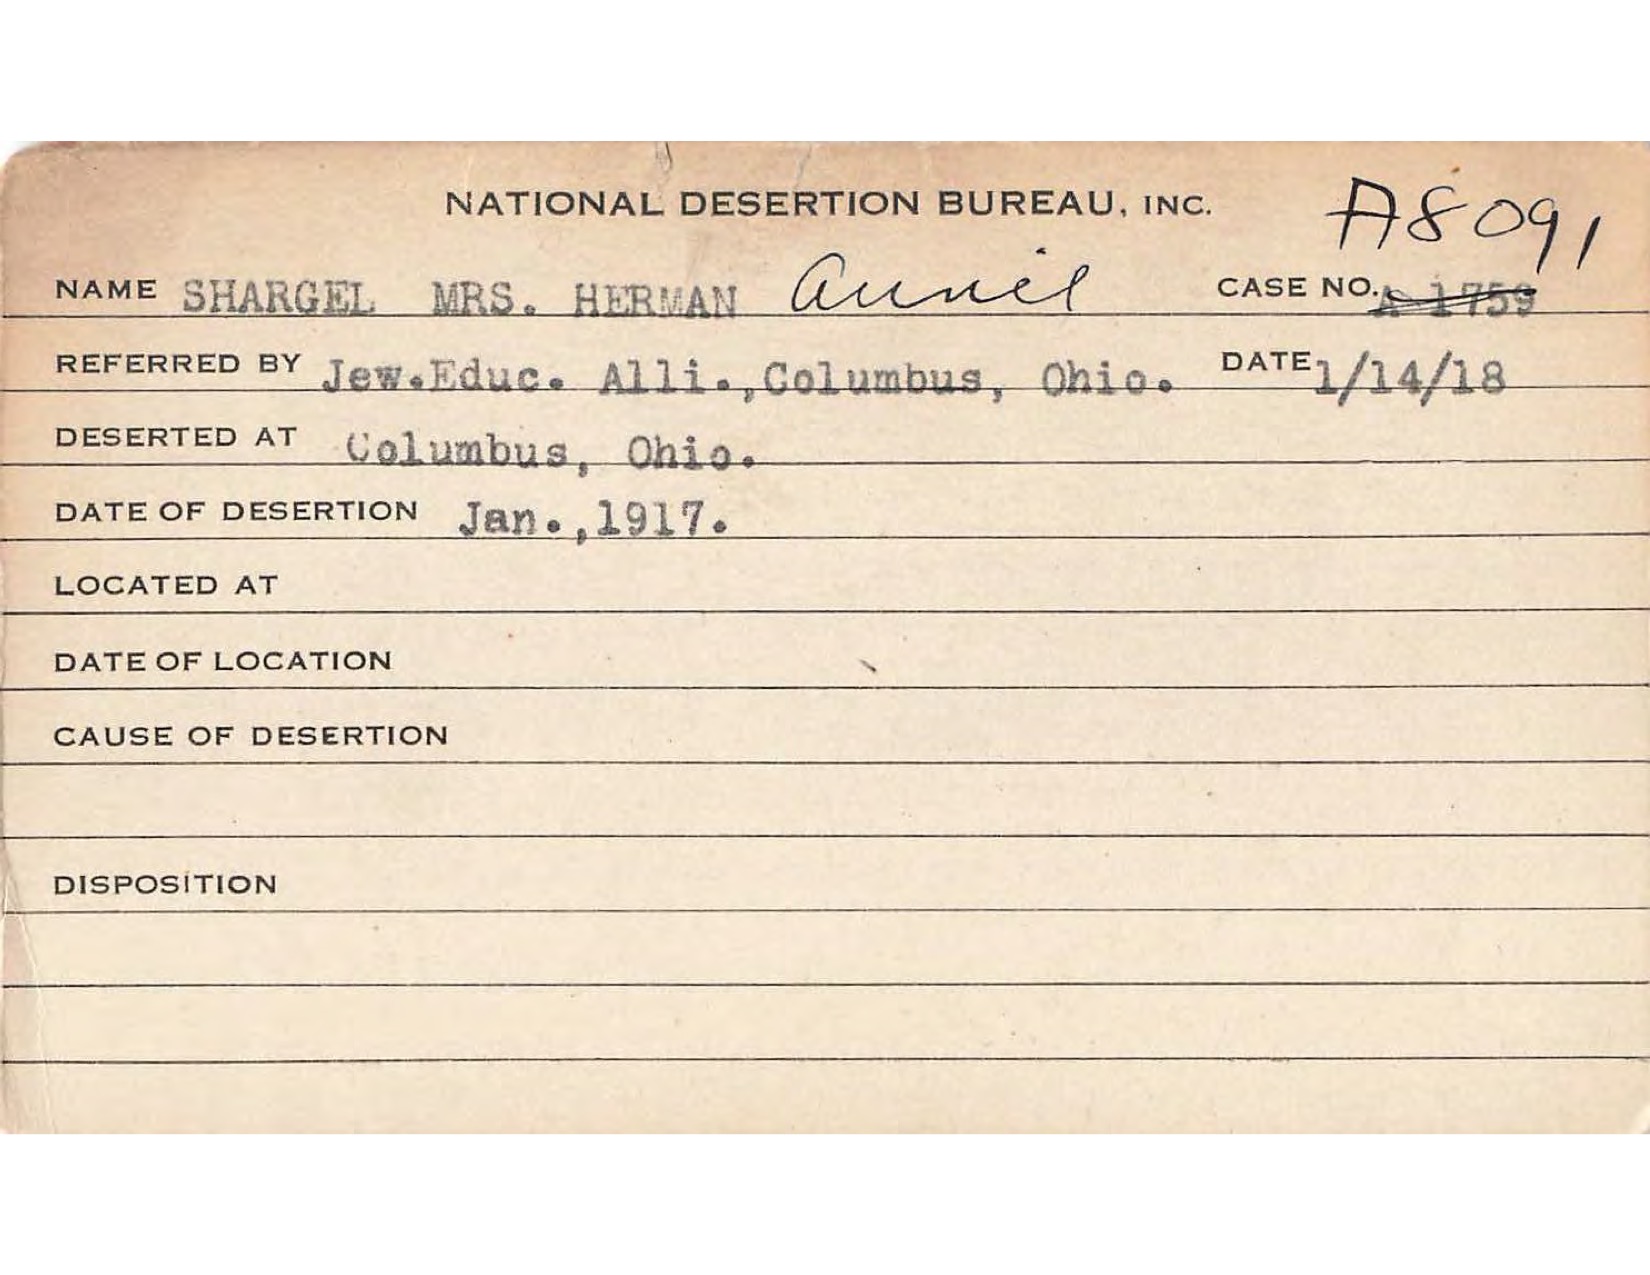 NATIONAL DESERTION BUREAU, INC. A8091
NAME SHARGEL MRS. HERMAN Annie CASE NO. A 1759
REFERRED BY Jew.Educ. Alli.,Columbus, Ohio. DATE 1/14/18
DESERTED AT Columbus, Ohio.
DATE OF DESERTION Jan.,1917.
LOCATED AT
DATE OF LOCATION
CAUSE OF DESERTION
DISPOSITION